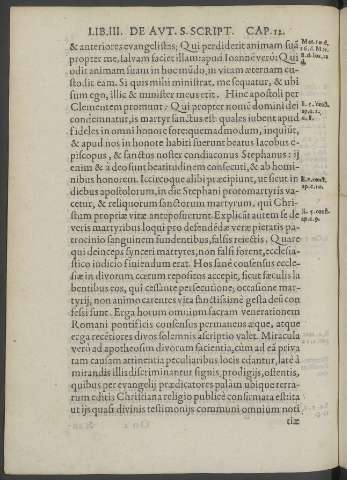 LIB. III. DE AVT. S. SCRIPT. CAP. 12.
& anteriores evangelistas; Qui perdiderit animam suã
propter me, salvam faciet illam: apud Ioannẽ verò: Qui
odit animam suam in hoc mũdo, in vitam æternam cu-
stodit eam. Si quis mihi ministrat, me sequatur, & ubi
sum ego, illic & minister meus erit. Hinc apostoli per
Clementem promunt: Qui propter nomẽ domini dei
condemnatur, is martyr sanctus est: quales iubent apud
fideles in omni honore fore: quemadmodum, inquiũt,
& apud nos in honore habiti fuerunt beatus Iacobus e-
piscopus, & sanctus noster condiaconus Stephanus: ij
enim & à deo sunt beatitudinem consecuti, & ab homi-
nibus honorem. Iccircoque alibi præcipiunt, ut sicut in
diebus apostolorum, in die Stephani protomartyris va-
cetur, & reliquorum sanctorum martyrum, qui Chri-
stum propriæ vitæ anteposuerunt. Explicãt autem se de
veris martyribus loqui pro defendẽdæ veræ pietatis pa-
trocinio sanguinem fundentibus, falsis reiectis. Quare
qui deinceps synceri martyres, non falsi forent, ecclesia-
stico iudicio siuiendum erat. Hos sanè consensus eccle-
siæ in divorum cœtum repositos accepit, sicut sæculis la
bentibus eos, qui cessante persecutione, occasione mar-
tyrij, non animo carentes vita sanctissimè gesta deũ con
fessi sunt. Erga horum omnium sacram venerationem
Romani pontificis consensus permanens æque, atque
erga recẽtiores divos solemnis ascriptio valet. Miracula
verò ad apotheosim divorum facientia, cùm ad eã priva
tam causam attinentia peculiaribus locis citantur, latè à
mirandis illis discriminantur signis, prodigijs, ostentis,
quibus per evangelij prædicatores palàm ubique terra-
rum editis Christiana religio publicè consirmata estita
ut ijs quasi divinis testimonijs communi omnium noti
tiæ
Mat. 10. d.
16. d. Mar.
8. d. Ioã. 12
li. 5. cõst.
ap. c. 1.
li. 8. cõst.
ap. c.
li. 5. cõst.
ap. c. 9.